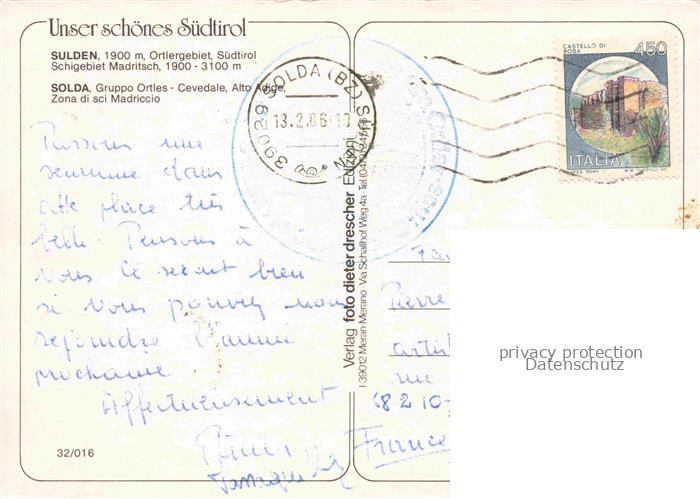 Unser schönes Südtirol
SULDEN, 1900 m, Ortlergebiet, Südtirol
Schigebiet Madritsch, 1900 - 3100 m
SOLDA, Gruppo Ortles - Cevedale, Alto Adige,
Zona di sci Madriccio
39029 SOLDA (BZ)
13.2.86-10
CASTELLO DI
ROSA
450
ITALIA
Passons une
semaine dans
cette place très
belle. Pensons à
vous. Ce serait bien
si vous pouviez nous
rejoindre l'année
prochaine
Affectueusement
Verlag foto dieter drescher Edizioni
I-39012 Meran-Merano Via Schallhof Weg 4a
Pierre
rue
68210
France
privacy protection
Datenschutz
32/016